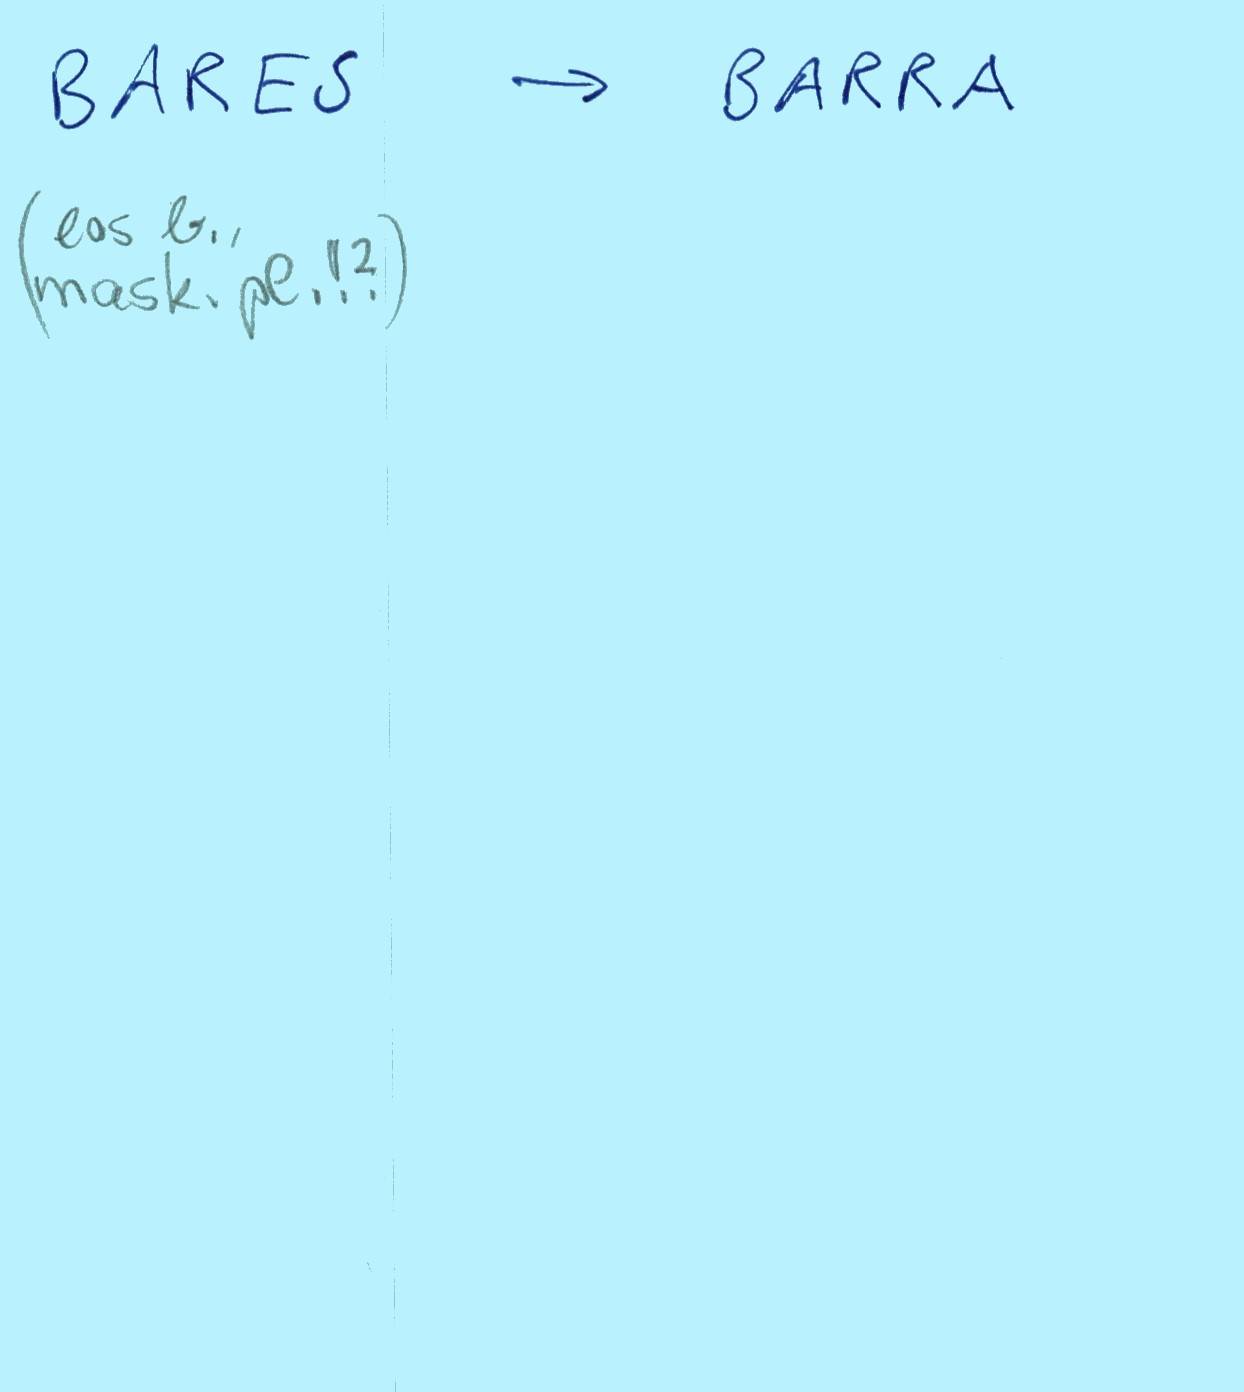 BARES → BARRA
(los b.,
mask. pl.!?)